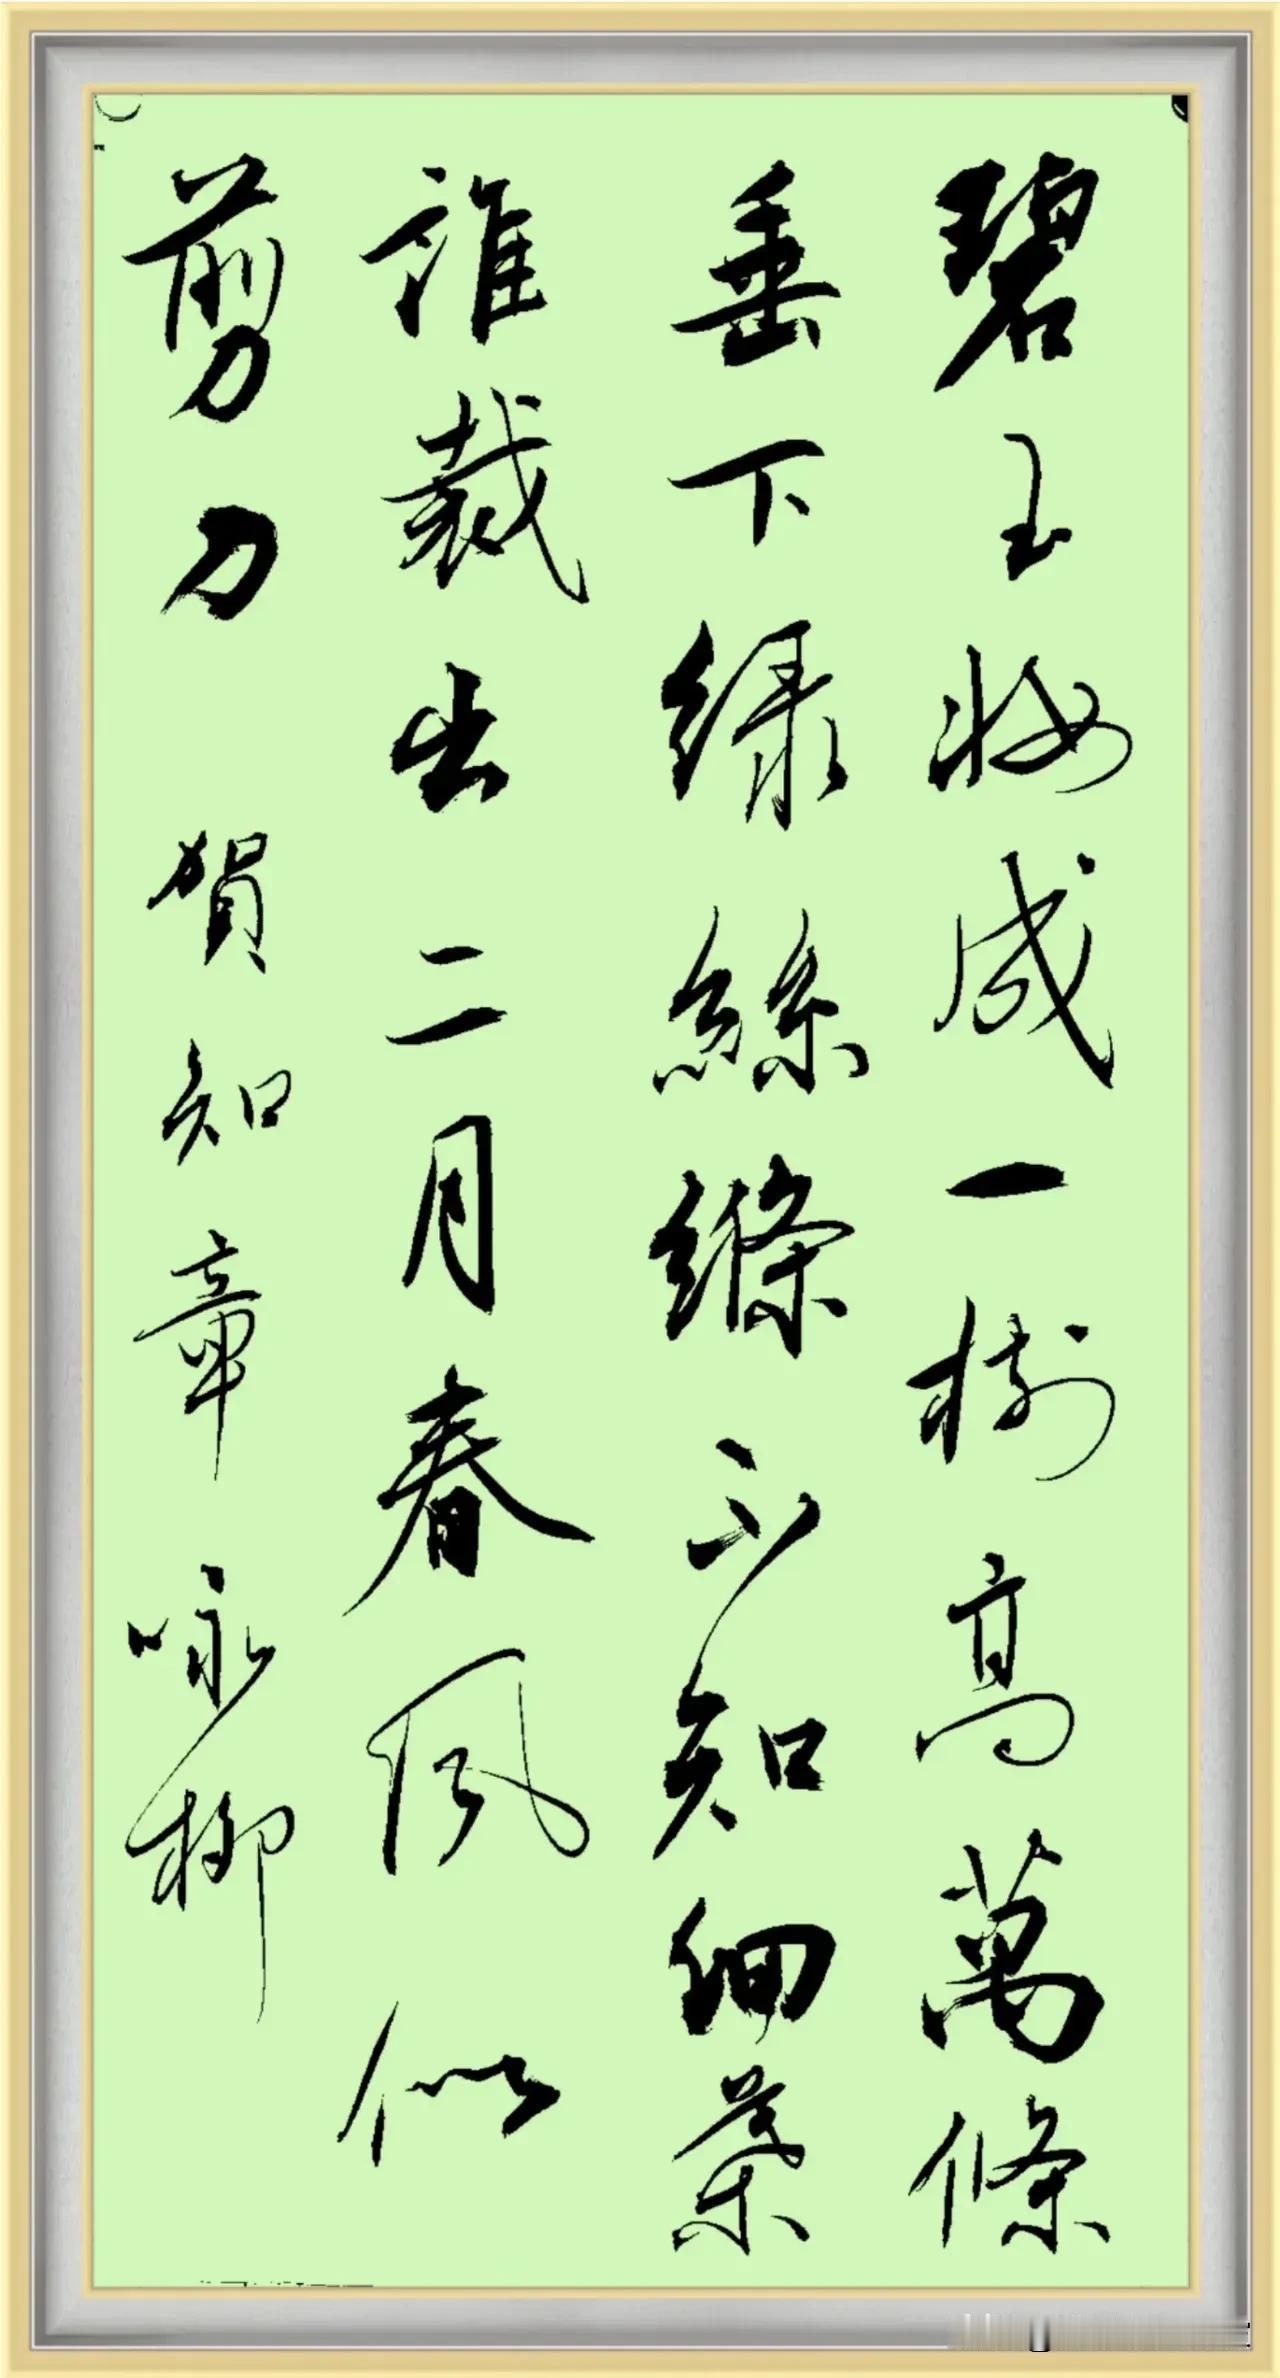 碧玉妝成一樹高萬條
垂下绿絲縧不知細葉
誰裁出二月春風似
剪刀 賀知章 咏柳